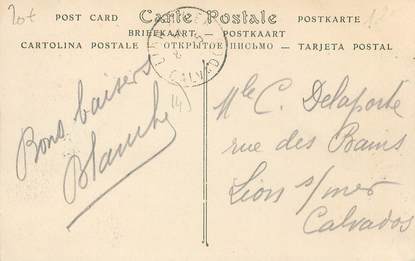 POST CARD Carte Postale POSTKARTE
BRIEFKAART — POSTKAART
CARTOLINA POSTALE — ОТКРЫТОЕ ПИСЬМО — TARJETA POSTAL
CALVADOS
Bons baisers
Blanche
Mlle C. Delaporte
rue des Bains
Lion s/mer
Calvados